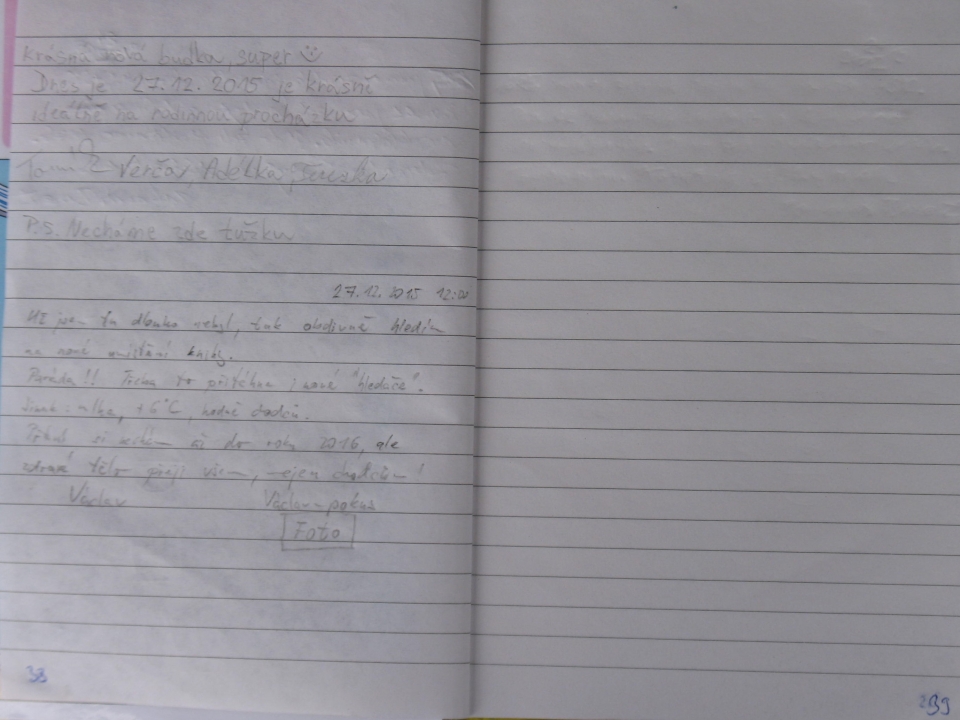 Krásná nová budka, super ☺
Dnes je 27.12.2015 je krásně
ideálně na rodinnou procházku
Verča, Adélka, Terezka
P.S. Necháme zde tužku
27.12.2015 12:00
Už jsem tu dlouho nebyl, tak obdivně hledím
na nové umístění knihy.
Paráda!! Třeba to přitáhne i nové "hledače".
Jinak: mlha, +6°C, hodně chodců.
si nechám až do roku 2016, ale
zdravé tělo přeji všem, nejen chodcům!
Václav Václav - pokus
Foto
38
239